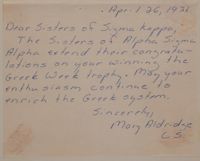 April 26, 1971
Dear Sisters of Sigma Kappa,
The Sisters of Alpha Sigma
Alpha extend their congratu-
lations on your winning the
Greek Week trophy. May your
enthusiasm continue to
enrich the Greek system.
Sincerely,
Mary Aldridge
C.S.